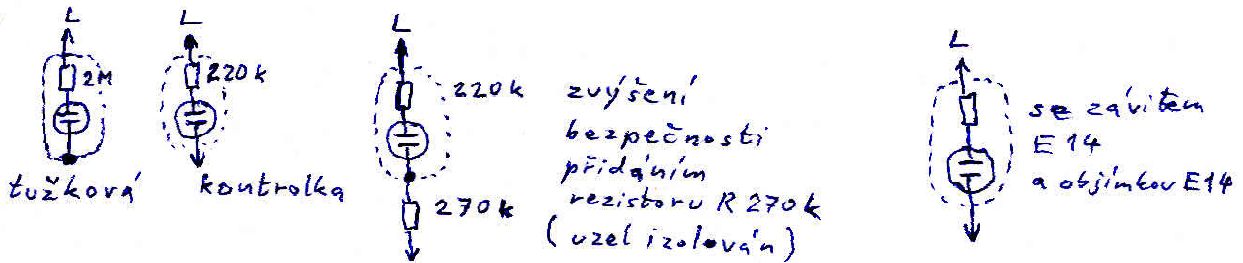 L
2M
tužková
L
220k
kontrolka
L
220k
270k
zvýšení
bezpečnosti
přidáním
rezistoru R 270k
(uzel izolován)
L
se závitem
E 14
a objímkou E14